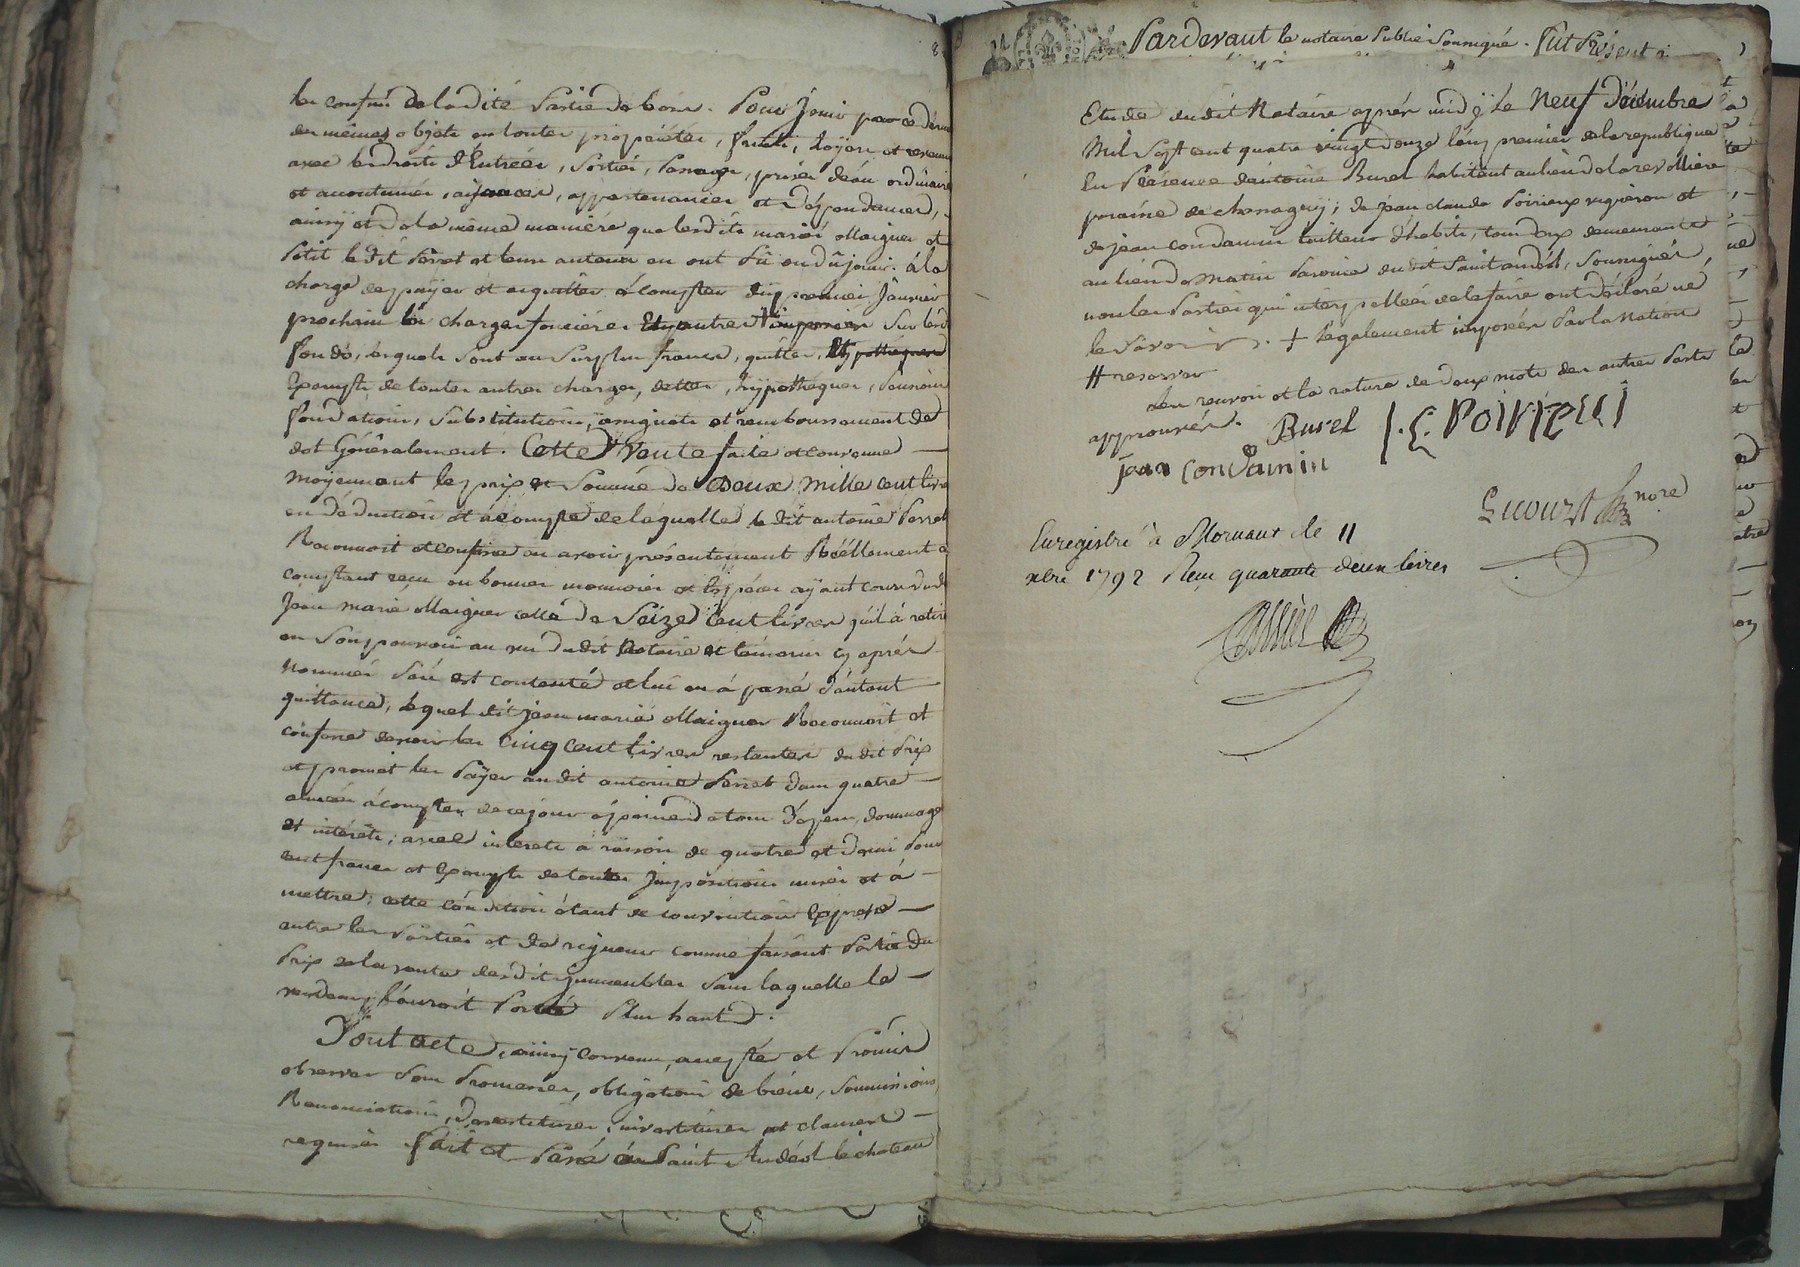 les confins de laditte Partie de bois. Pour Jouir par ce dernier
des mêmes objets en toutes propriétés, fruits, loyers et revenus
avec les droits d'Entrées, Sorties, Passages, prises d'eau ordinaires
et accoutumés, aysances, appartenances et dépendances,
ainsy et de la même manière que lesdits mariés Maignes et
Petit ledit Perret et leurs auteurs en ont dû ou dû jouir. à la
charge de payer et acquitter à compter du premier Janvier
prochain les charges foncières et autres + imposées Sur lesd
fonds, lesquels Sont au Surplus francs, quittes, hypothèques
Exempts de toutes autres charges, dettes, hypothèques, Pensions
fondations, Substitutions, assignats et remboursement de
dot Généralement. Cette Vente faite et convenue
Moyennant le prix et Somme de deux mille cent livres
en déduction et àcompte de laquelle ledit antoine Perret
Reconnoit et confesse en avoir présentement Réellement et
comptant reçu en bonnes monnoies et Espèces ayant cours dudit
Jean marie Maignes celle de Seize Cent livres qu'il à retiré
en Son pouvoir au vu dudit Notaire et témoins cy après
Nommés S'en est contenté et lui en à passé d'autant
quittance, lequel dit jean marie Maignes Reconnoit et
confesse devoir les Cinq Cent livres restantes dudit Prix
et promet les Payer audit antoine Perret dans quatre
années àcompter de ce jour à peine de tous Dépens, dommages
et intérêts; avec interets à raison de quatre et demi pour
cent francs et Exempts de toutes Impositions mises et à
mettre; cette condition étant de convention Expresse
entre les Parties et de rigueur comme faisant Partie du
Prix de la vente desdits immeubles Sans laquelle le
vendeur l'auroit Porté Plus haut.
Dont acte, ainsy convenu, accepté et Promis
observer Sous Promesses, obligations de biens, Soumissions
Renonciations, Devestitures, investitures et clauses
requises Fait et Passé à Saint Andéol le chateau
Pardevant le notaire Public Soussigné. Fut Présent
Etude dudit Notaire après midy Le Neuf Décembre
Mil Sept cent quatre vingt douze l'an premier de la republique
En Présence d'antoine Burel habitant au lieu de la revollière
paroisse de chassagny; de jean claude Poirieux vigneron et
de jean condamin tailleur d'habits, tous deux demeurants
au lieu de Matin Paroisse dudit Saint andéol, Soussignés,
non les Parties qui interpellées de le faire ont déclaré ne
le Savoir. + légalement imposées Par la Nation
# reserver
Les renvois et la rature de deux mots des autres Parts
approuvés. Burel J. C. Poirieu
jean condamin
Lecourt nore
Enregistré à Mornant le 11
xbre 1792 Reçu quarante deux livres